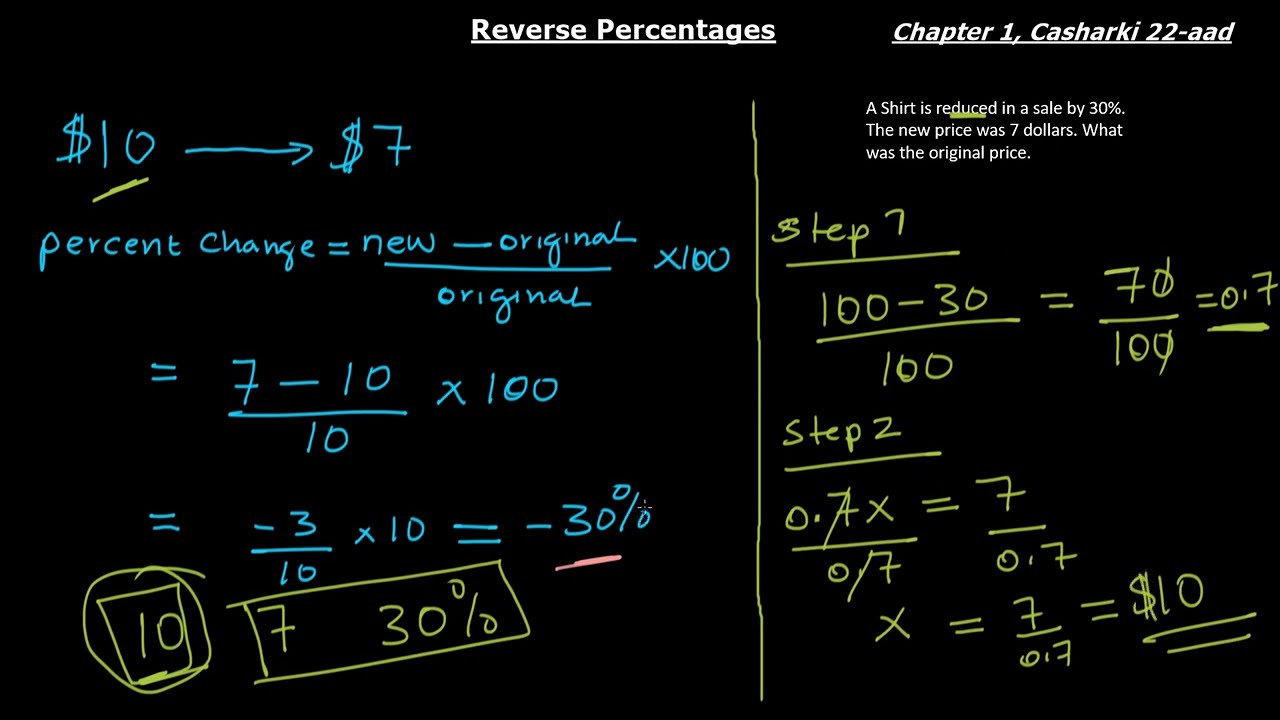 Reverse Percentages
Chapter 1, Casharki 22-aad
$10 → $7
percent change = new − original / original ×100
= 7 − 10 / 10 × 100
= -3 / 10 × 10 = -30%
10 7 30%
A Shirt is reduced in a sale by 30%.
The new price was 7 dollars. What
was the original price.
Step 1
100 − 30 / 100 = 70 / 100 = 0.7
Step 2
0.7x / 0.7 = 7 / 0.7
x = 7 / 0.7 = $10